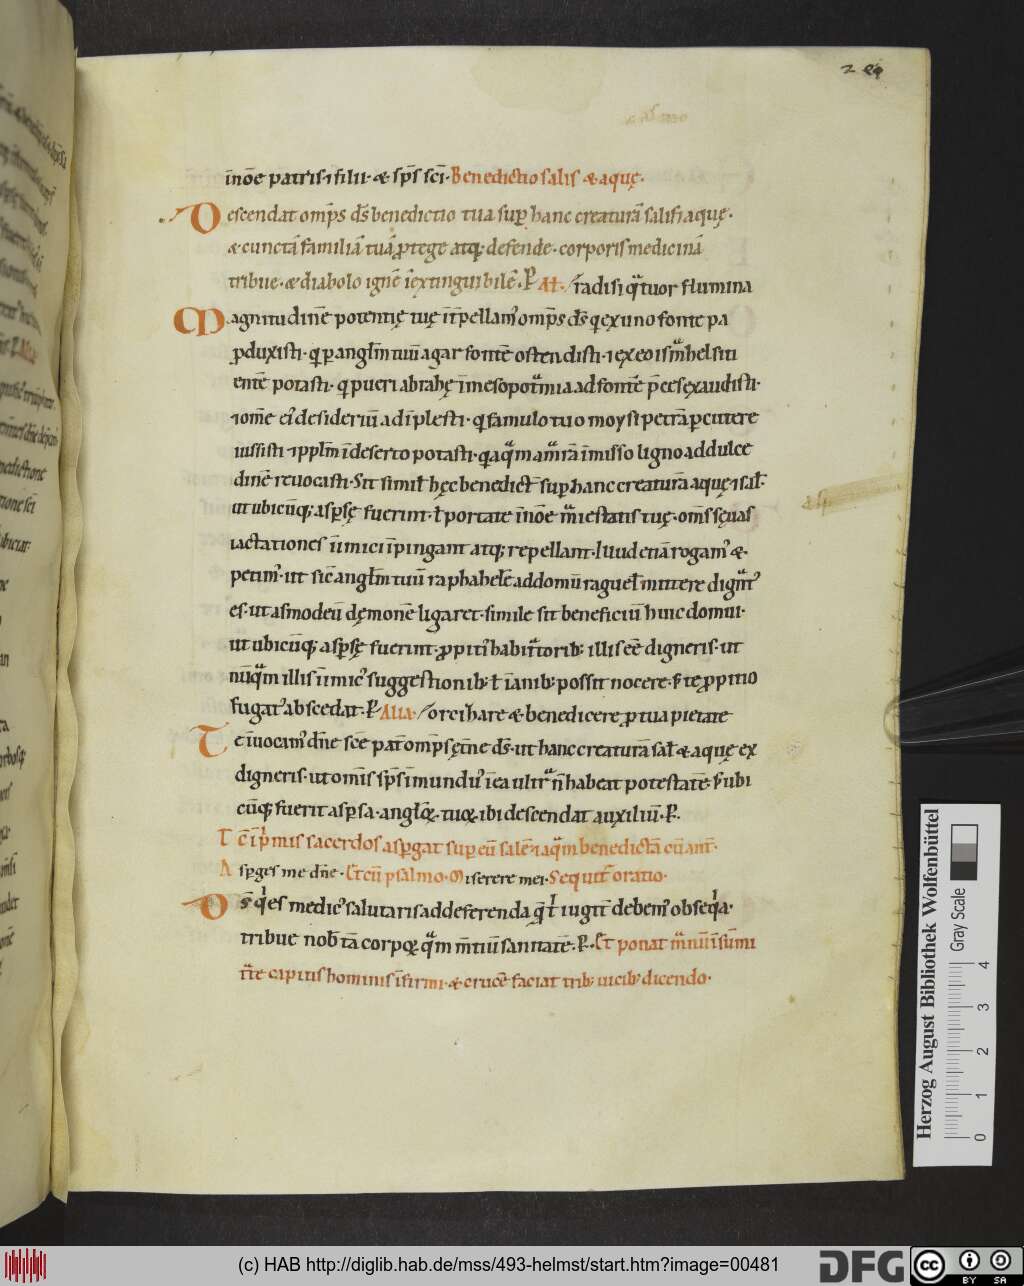 inōe patris ⁊ filii · & sp̄s sc̄i · Benedictio salis & aquę ·
Descendat omp̄s d̄s benedictio tua sup̱ hanc creaturā salis ⁊ aquę ·
& cunctā familiā tuā ꝓtege atq; defende · corporis medicinā
tribue · & diabolo ignē īextinguibilē · P̱ Al̄ · / radisi quͣtuor flumina
Magnitudinē potentię tuę īt̄pellamꝰ omp̄s d̄s q̱ ex uno fonte pa
ꝓduxisti · q̱ p̱ angl̄m tuū agar fontē ostendisti · ⁊ ex eo ismͣhel siti
entē potasti · q̱ pueri abrahę ī mesopotͣmia ad fontē p̄ces exaudisti ·
⁊ om̄e eiꝰ desideriū adīplesti · q̱ famulo tuo moysi petrā p̱cutere
iussisti ⁊ pplm̄ ī deserto potasti · q̱ aqͣm amͣrā ī misso ligno ad dulce
dinē reuocasti · Sit simil̄ hęc benedict̄ sup̱ hanc creaturā aquę ⁊ sal̄ ·
ut ubicūq; asp̱sę fuerint · ł portate inōe mͣiestatis tuę · om̄s sęuas
iactationes inimici īpingant atq; repellant · Illud etiā rogamꝰ &
petimꝰ · ut sic̄ angl̄m tuū raphahelē ad domū raguel̄ mittere dignͣtꝰ
es · ut asmodeū dęmonē ligaret · simile sit beneficiū huic domui ·
ut ubicūq; asp̱sę fuerint · ꝓpitiꝰ habitͣtorib; illis eē digneris · ut
nūqͣm illis inimicꝰ suggestionib; ł ianib; possit nocere · s; te ꝓpitio
fugatꝰ abscedat · P̱ Alia · / orcihare & benedicere ꝓ tua pietate
Te īuocamꝰ dn̄e sc̄e pat̄ omp̄s ęt̄ne d̄s · ut hanc creaturā sal̄ & aquę ex
digneris · ut om̄is sp̄s īmundꝰ īea ultͣ n̄ habeat potestatē · s; ubi
cūq; fuerit asp̱sa · angl̄oꝝ tuoꝝ ibi descendat auxiliū · P̱ ·
Tc̄ īpͥmis sacerdos asp̱gat sup̱ eū salē ⁊ aqͣm benedictā cū ant̄ ·
Asp̱ges me dn̄e · Et cū psalmo · Miserere mei · Sequit̄ oratio ·
Ds̄ qͥ es medicꝰ salutaris ad deferenda q̄ ł iugit̄ debemꝰ obseqͥa ·
tribue nob̄ tā corpoꝝ qͣm m̄tiū sanitatē · P̱ · Et ponat mͣnū ī sūmi
tͣte capitis hominis īfirmi · & crucē faciat trib; uicib; dicendo ·
Herzog August Bibliothek Wolfenbüttel
Gray Scale
0 1 2 3 4
(c) HAB http://diglib.hab.de/mss/493-helmst/start.htm?image=00481
DFG
cc BY SA